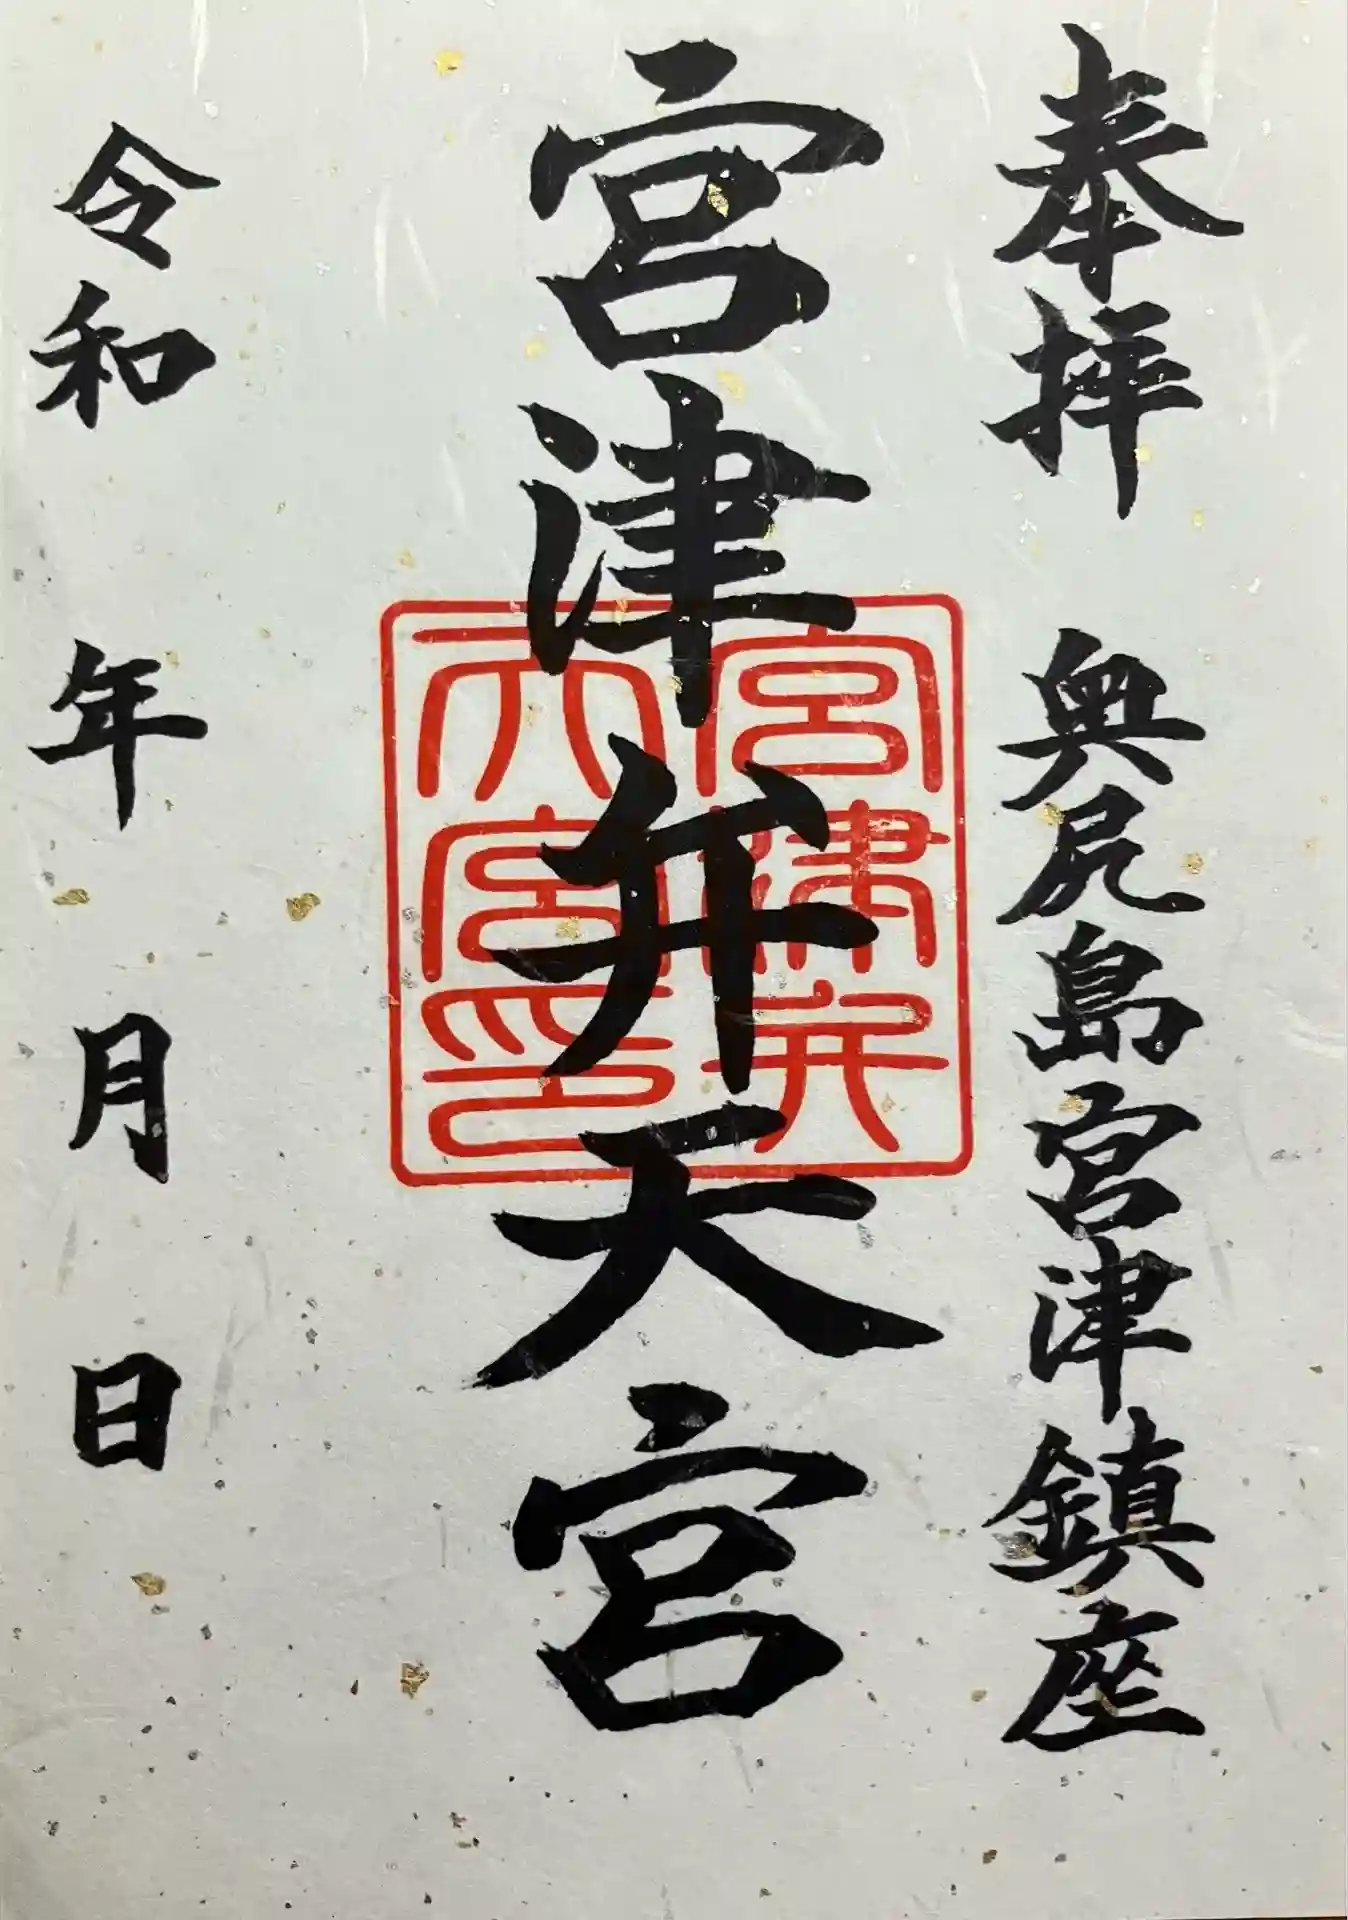 奉拝 奥尻島宮津鎮座
宮津弁天宮
宮津弁
天宮印
令和 年 月 日